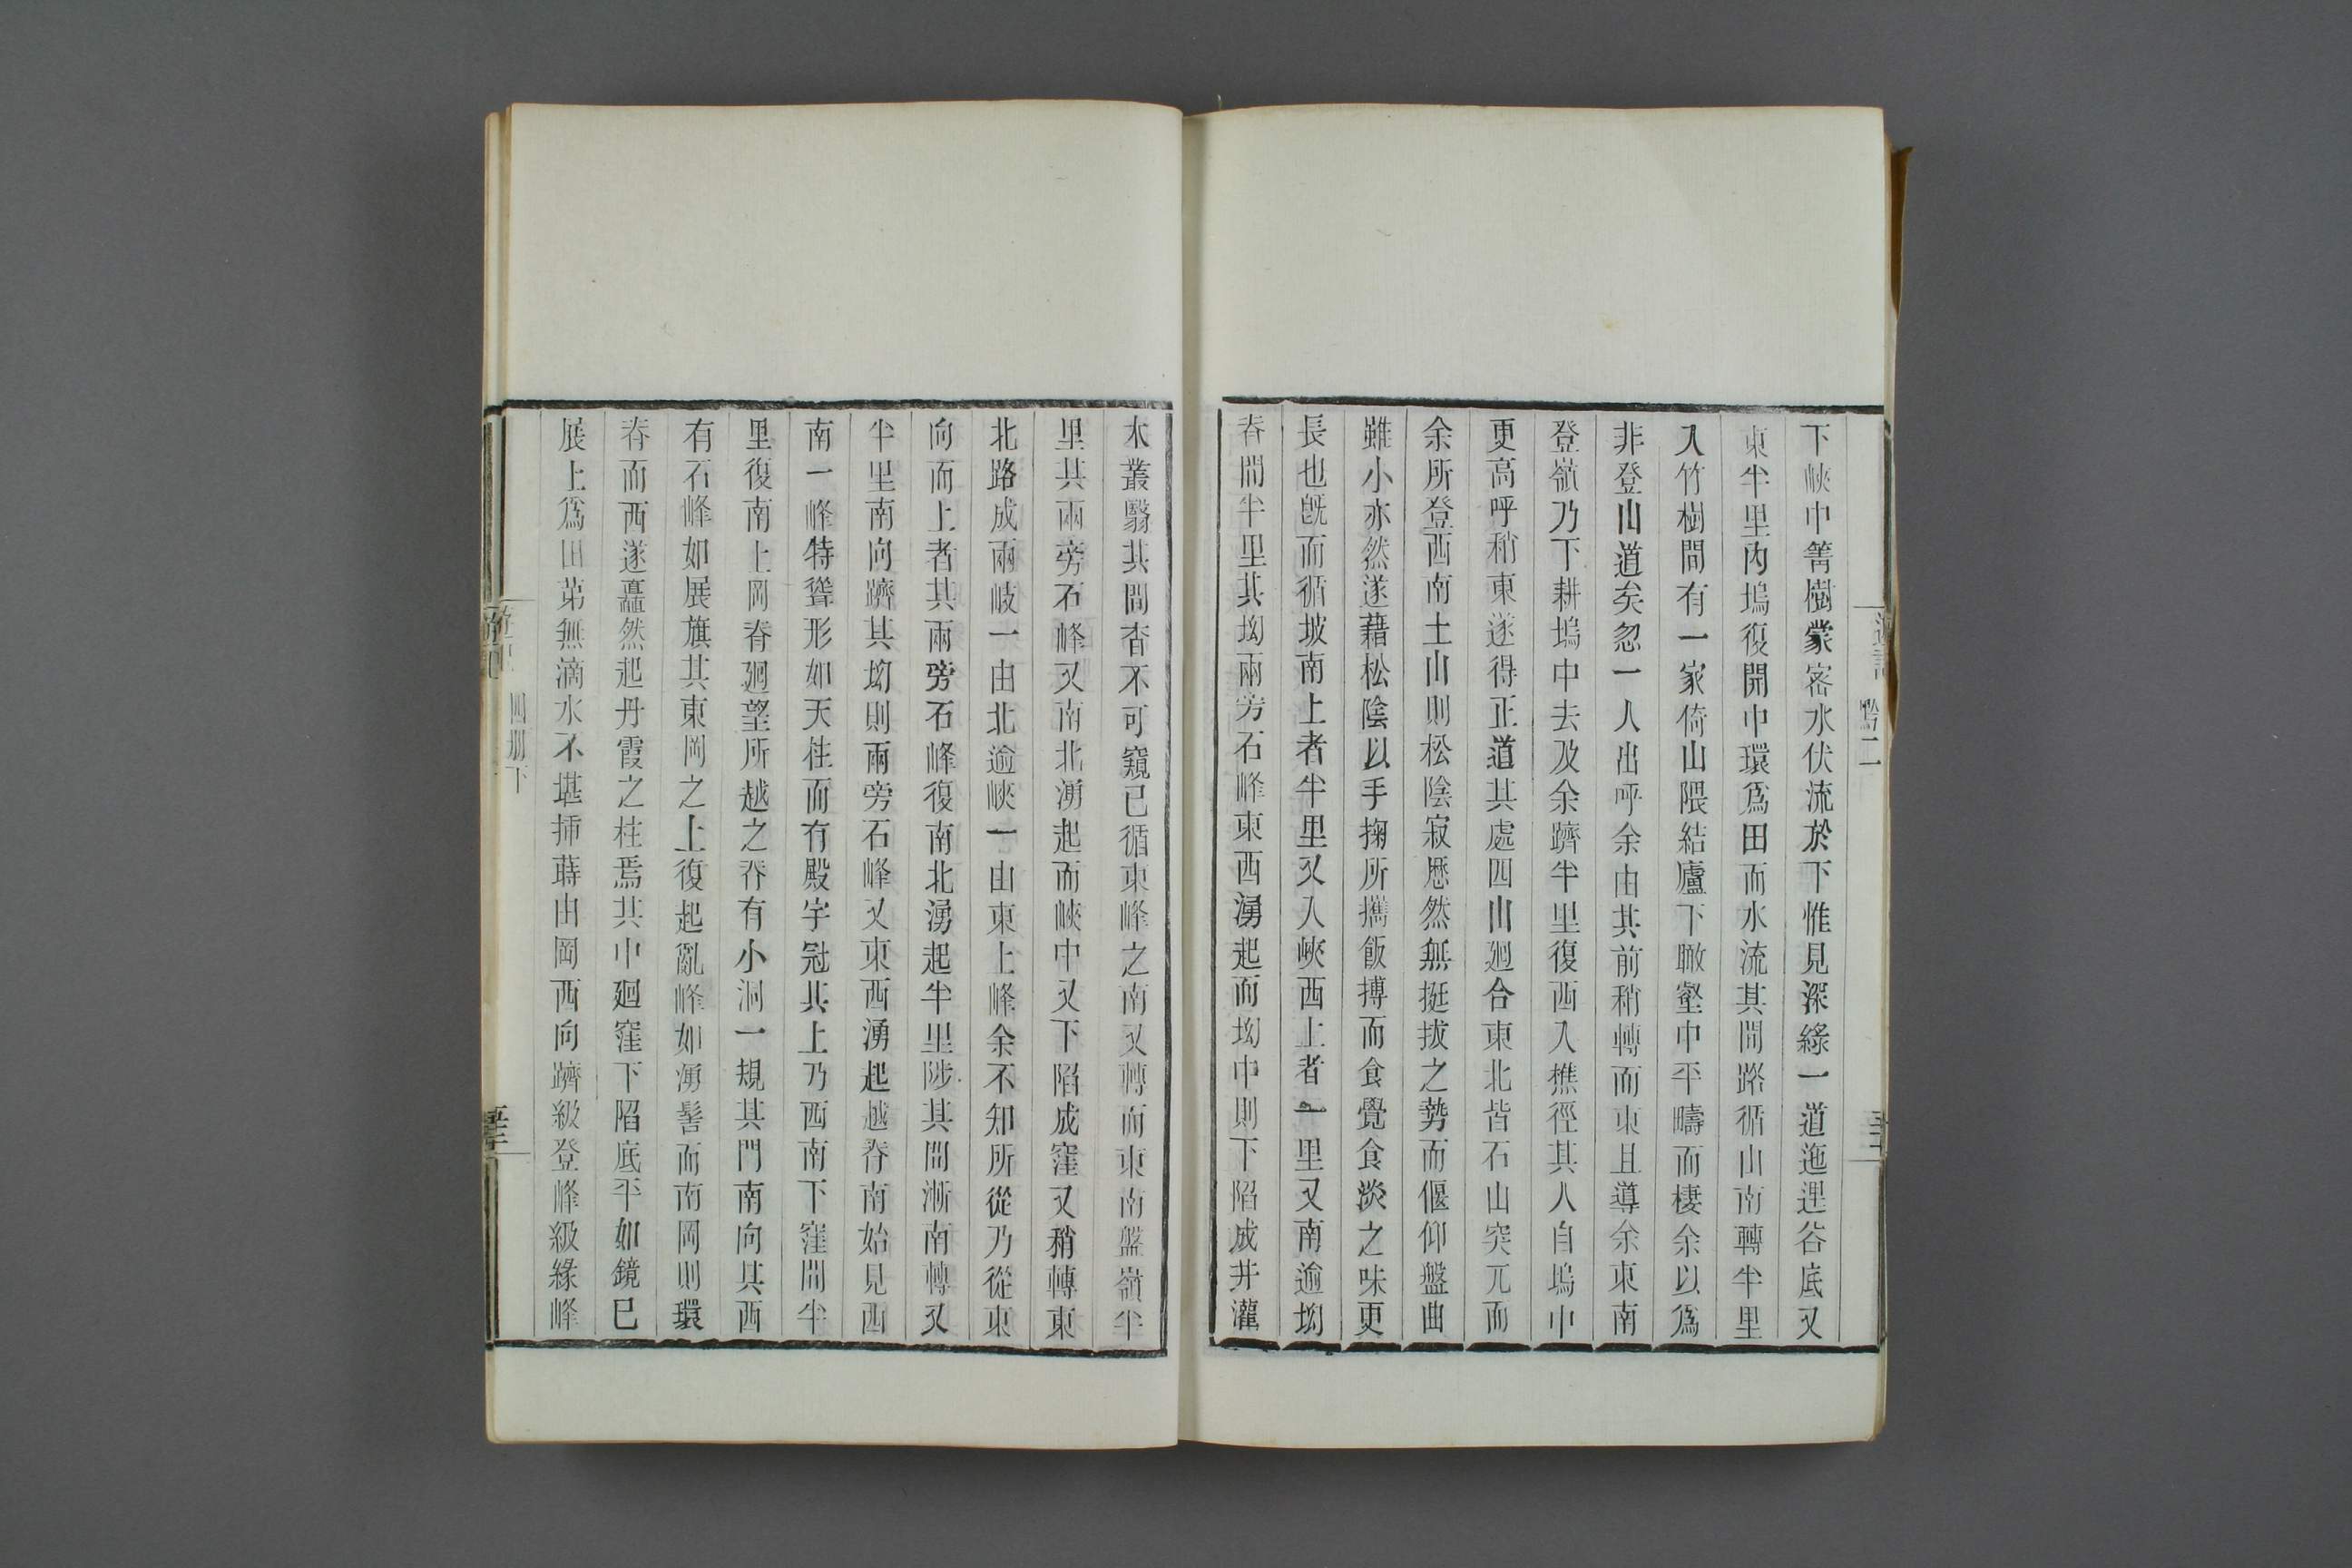 下峽中箐樹蒙密水伏流於下惟見深綠一道迤逞谷底又
東半里內塢復開中環爲田而水流其間路循山南轉半里
入竹樹間有一家倚山隈結廬下瞰壑中平疇而棲余以爲
非登山道矣忽一人出呼余由其前稍轉而東且導余東南
登嶺乃下耕塢中去及余躋半里復西入樵徑其人自塢中
更高呼稍東遂得正道其處四山廻合東北皆石山突兀而
余所登西南土山則松陰寂歷然無挺拔之勢而偃仰盤曲
雖小亦然遂藉松陰以手掬所攜飯摶而食覺食淡之味更
長也旣而循坡南上者半里又入峽西上者一里又南逾坳
脊間半里其坳兩旁石峰東西湧起而坳中則下陷成井灌
木叢翳其間杳不可窺已循東峰之南又轉而東南盤嶺半
里其兩旁石峰又南北湧起而峽中又下陷成窪又稍轉東
北路成兩岐一由北逾峽一由東上峰余不知所從乃從東
向而上者其兩旁石峰復南北湧起半里陟其間漸南轉又
半里南向躋其坳則兩旁石峰又東西湧起越脊南始見西
南一峰特聳形如天柱而有殿宇冠其上乃西南下窪間半
里復南上岡脊廻望所越之脊有小洞一規其門南向其西
有石峰如展旗其東岡之上復起亂峰如湧髻而南岡則環
脊而西遂矗然起丹霞之柱焉其中廻窪下陷底平如鏡已
展上爲田第無滴水不堪揷蒔由岡西向躋級登峰級緣峰
遊記
四册下
黔二